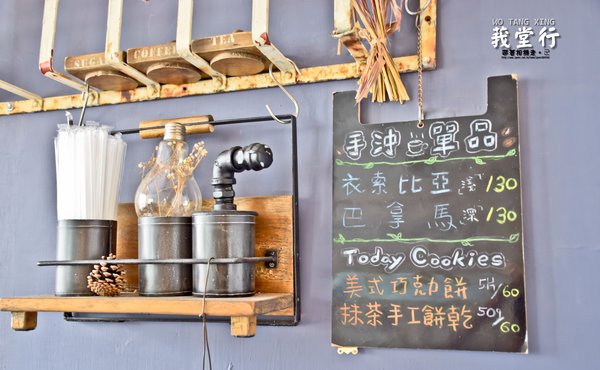 WO TANG XING
莪堂行
SUGAR COFFEE TEA
手沖單品
衣索比亞 /130
巴拿馬 /130
Today Cookies
美式巧克力餅 /60
抹茶手工餅乾 50g/60